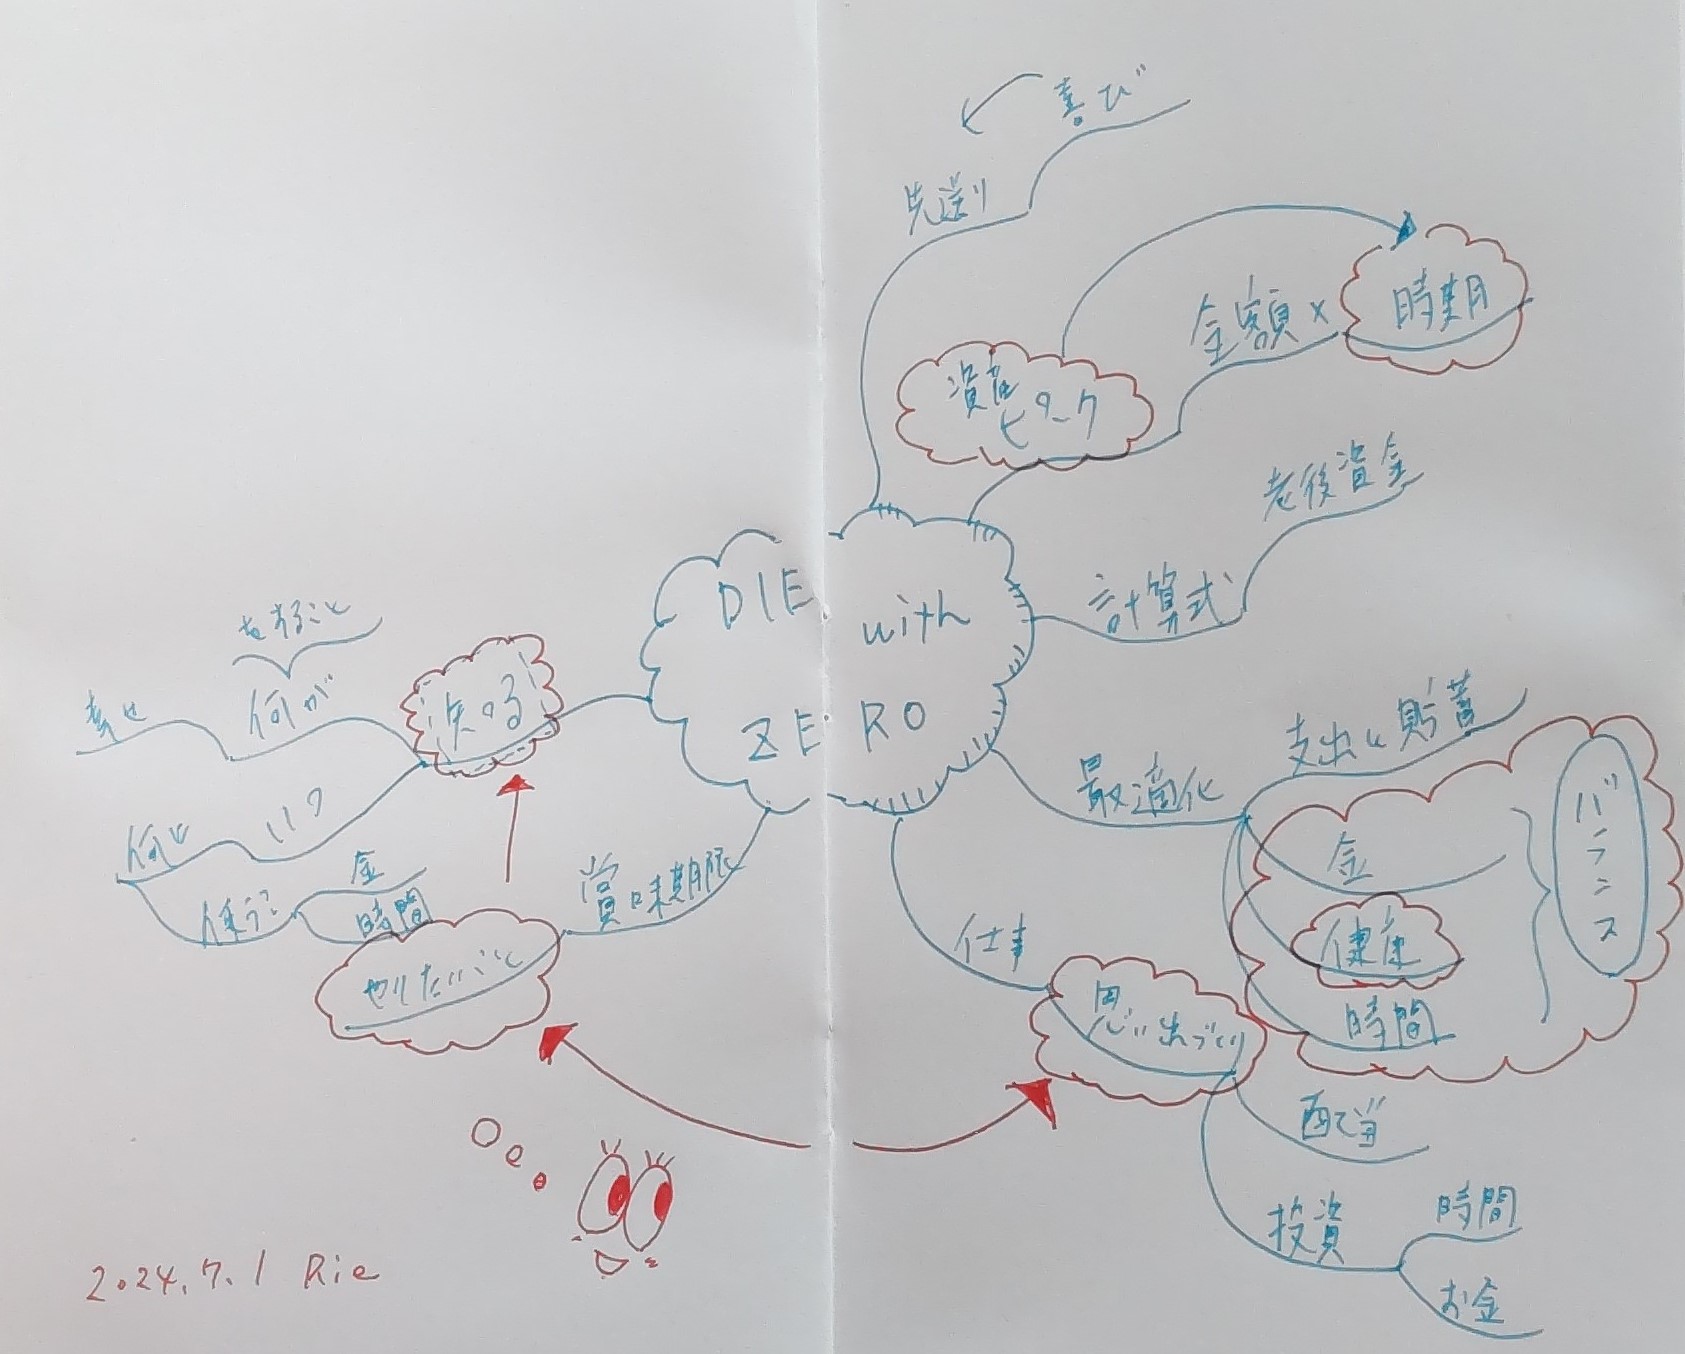 喜び
先送り
金額×
時期
資産
ピーク
老後資金
計算式
DIE
with
ZERO
支出と貯蓄
最適化
バランス
金
健康
時間
仕事
思い出づくり
配当
投資
時間
お金
知る
何が
幸せ
いつ
何に
使う?
金
時間
賞味期限
やりたいこと
2024.7.1 Rie